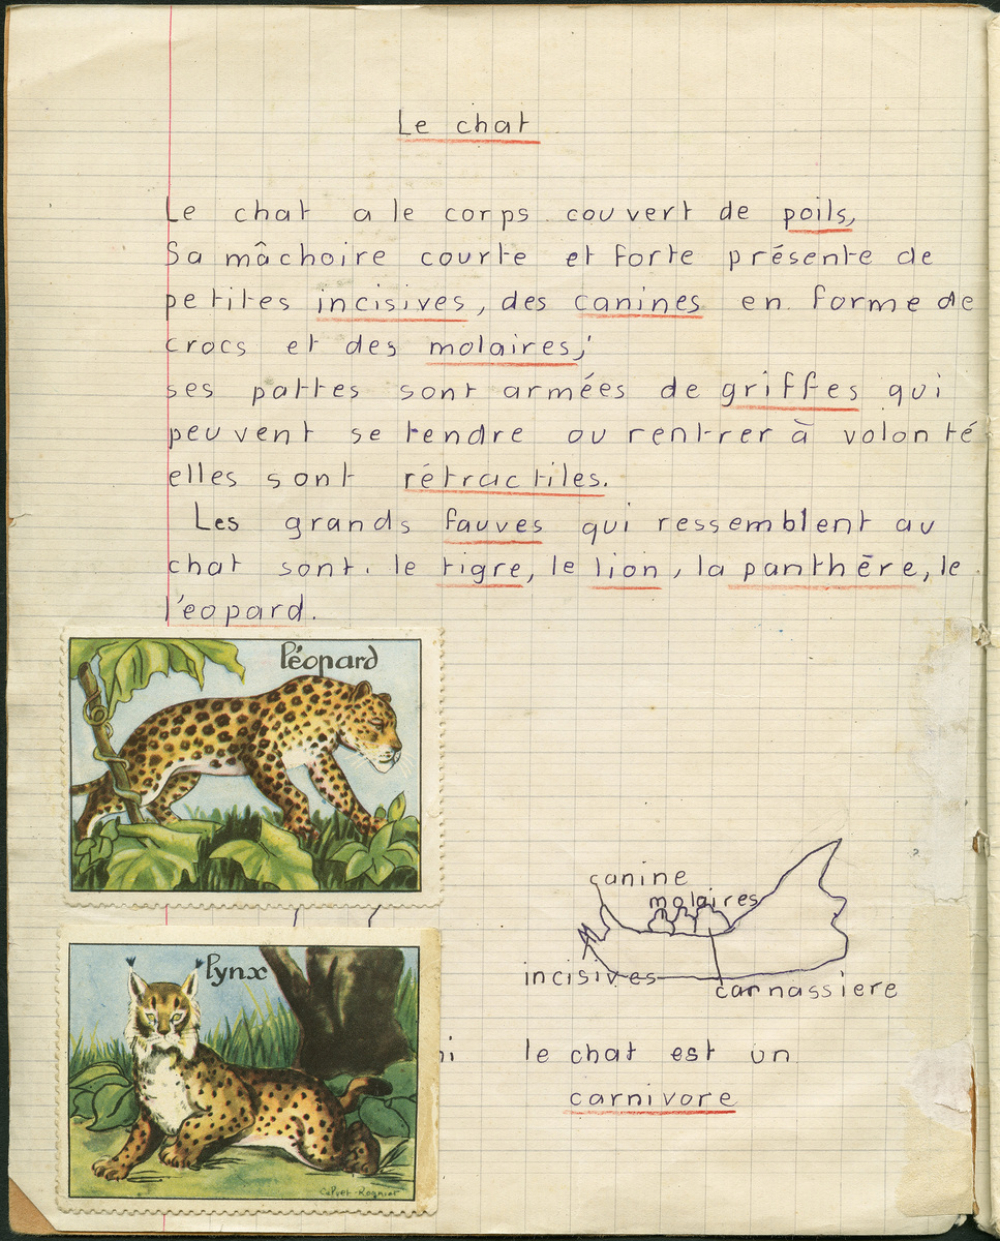 Le chat
Le chat a le corps couvert de poils,
Sa mâchoire courte et forte présente de
petites incisives, des canines en forme de
crocs et des molaires;
ses pattes sont armées de griffes qui
peuvent se tendre ou rentrer à volonté
elles sont rétractiles.
Les grands fauves qui ressemblent au
chat sont. le tigre, le lion, la panthère, le
l'eopard.
léopard
canine
molaires
incisives
carnassiere
lynx
le chat est un
carnivore